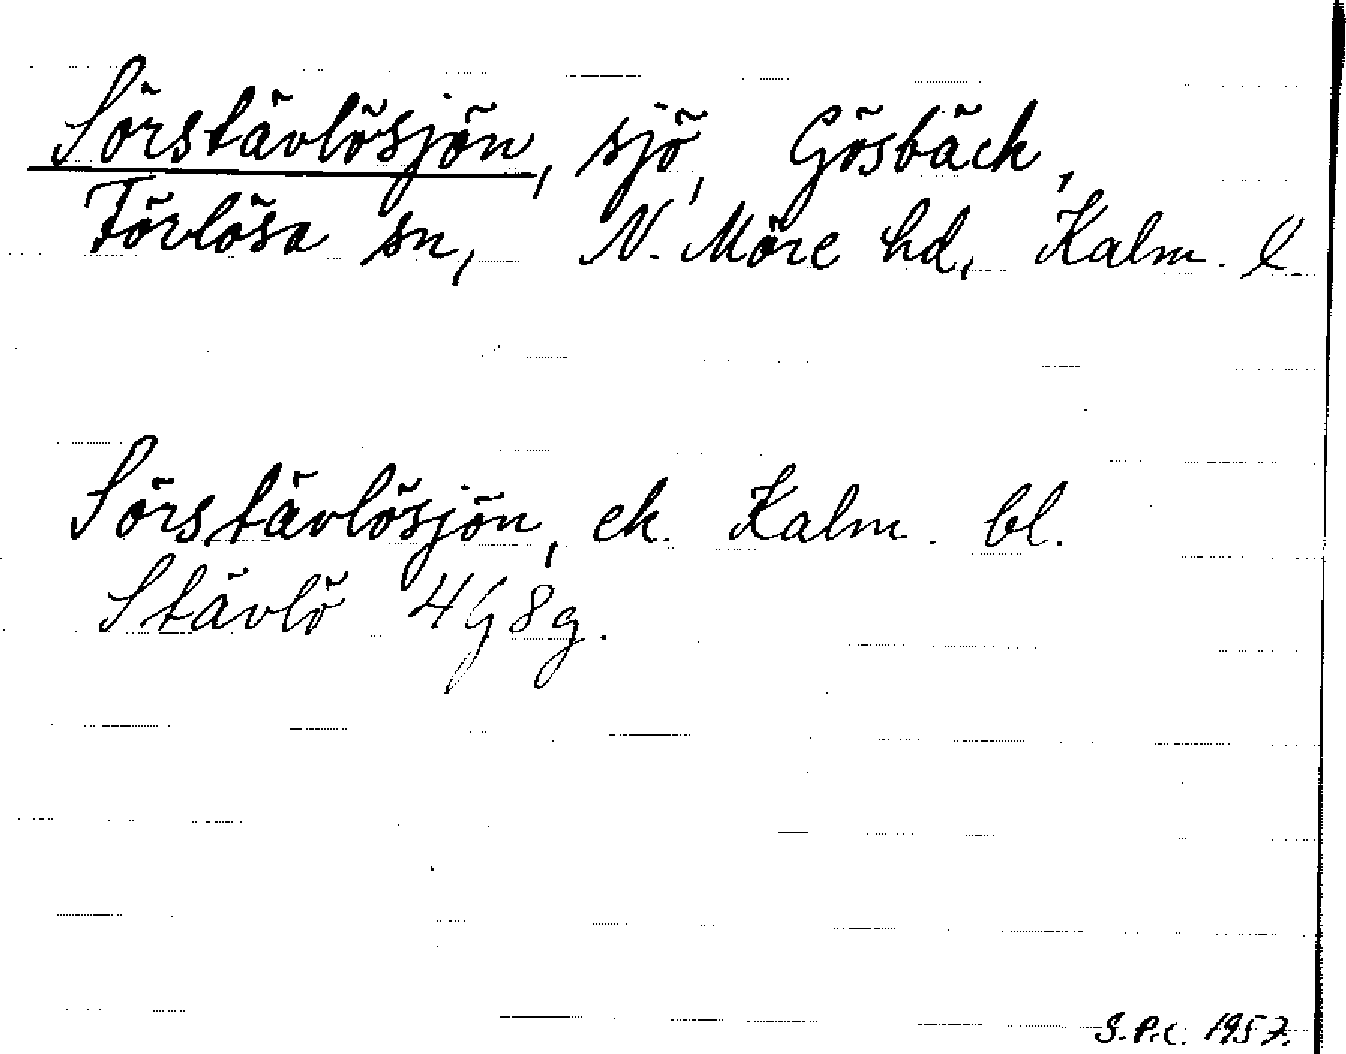 Sörstävlösjön, sjö, Gösbäck,
Förlösa sn, N. Möre hd, Kalm. l
Sörstävlösjön, ek. Kalm. bl.
Stävlö 4G8g.
S.P.C. 1957.